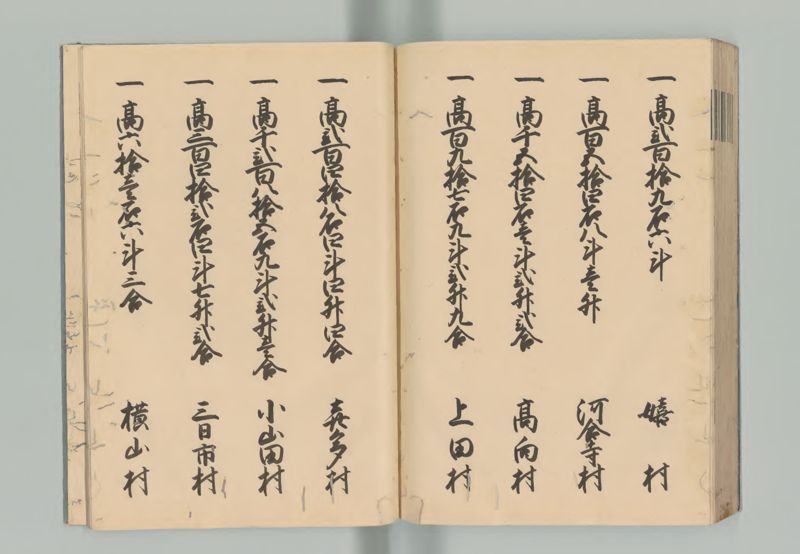 一 高弐百拾九石六斗 嬉村
一 高百五拾四石八斗壱升 河合寺村
一 高千五拾四石壱斗弐升弐合 高向村
一 高百九拾七石九斗弐升九合 上田村
一 高弐百四拾八石四斗四升四合 喜多村
一 高千弐百八拾五石九斗弐升壱合 小山田村
一 高三百四拾弐石四斗七升弐合 三日市村
一 高六拾壱石六斗三合 横山村